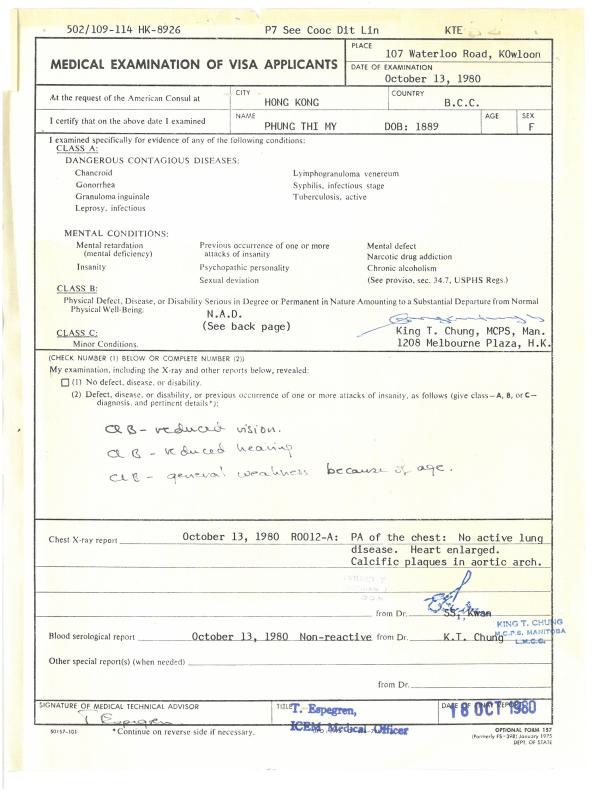 502/109-114 HK-8926 P7 See Cooc Dit Lin KTE
MEDICAL EXAMINATION OF VISA APPLICANTS
PLACE
107 Waterloo Road, KOwloon
DATE OF EXAMINATION
October 13, 1980
At the request of the American Consul at
CITY
HONG KONG
COUNTRY
B.C.C.
I certify that on the above date I examined
NAME
PHUNG THI MY DOB: 1889
AGE
SEX
F
I examined specifically for evidence of any of the following conditions:
CLASS A:
DANGEROUS CONTAGIOUS DISEASES:
Chancroid Lymphogranuloma venereum
Gonorrhea Syphilis, infectious stage
Granuloma inguinale Tuberculosis, active
Leprosy, infectious
MENTAL CONDITIONS:
Mental retardation Previous occurrence of one or more Mental defect
(mental deficiency) attacks of insanity Narcotic drug addiction
Insanity Psychopathic personality Chronic alcoholism
Sexual deviation (See proviso, sec. 34.7, USPHS Regs.)
CLASS B:
Physical Defect, Disease, or Disability Serious in Degree or Permanent in Nature Amounting to a Substantial Departure from Normal
Physical Well-Being.
N.A.D.
(See back page)
King T. Chung, MCPS, Man.
1208 Melbourne Plaza, H.K.
CLASS C:
Minor Conditions.
(CHECK NUMBER (1) BELOW OR COMPLETE NUMBER (2))
My examination, including the X-ray and other reports below, revealed:
(1) No defect, disease, or disability.
(2) Defect, disease, or disability, or previous occurrence of one or more attacks of insanity, as follows (give class—A, B, or C—
diagnosis, and pertinent details*):
Cl B - reduced vision.
Cl B - reduced hearing
Cl B - general weakness because of age.
Chest X-ray report October 13, 1980 R0012-A: PA of the chest: No active lung
disease. Heart enlarged.
Calcific plaques in aortic arch.
from Dr. SS, Kwan
KING T. CHUNG
M.C.P.S. MANITOBA
L.M.C.C.
Blood serological report October 13, 1980 Non-reactive from Dr. K.T. Chung
Other special report(s) (when needed)
from Dr.
SIGNATURE OF MEDICAL TECHNICAL ADVISOR
T Espegren
TITLE
T. Espegren,
ICEM Medical Officer
18 OCT 1980
50157-101
*Continue on reverse side if necessary.
OPTIONAL FORM 157
(Formerly FS-398) January 1975
DEPT. OF STATE